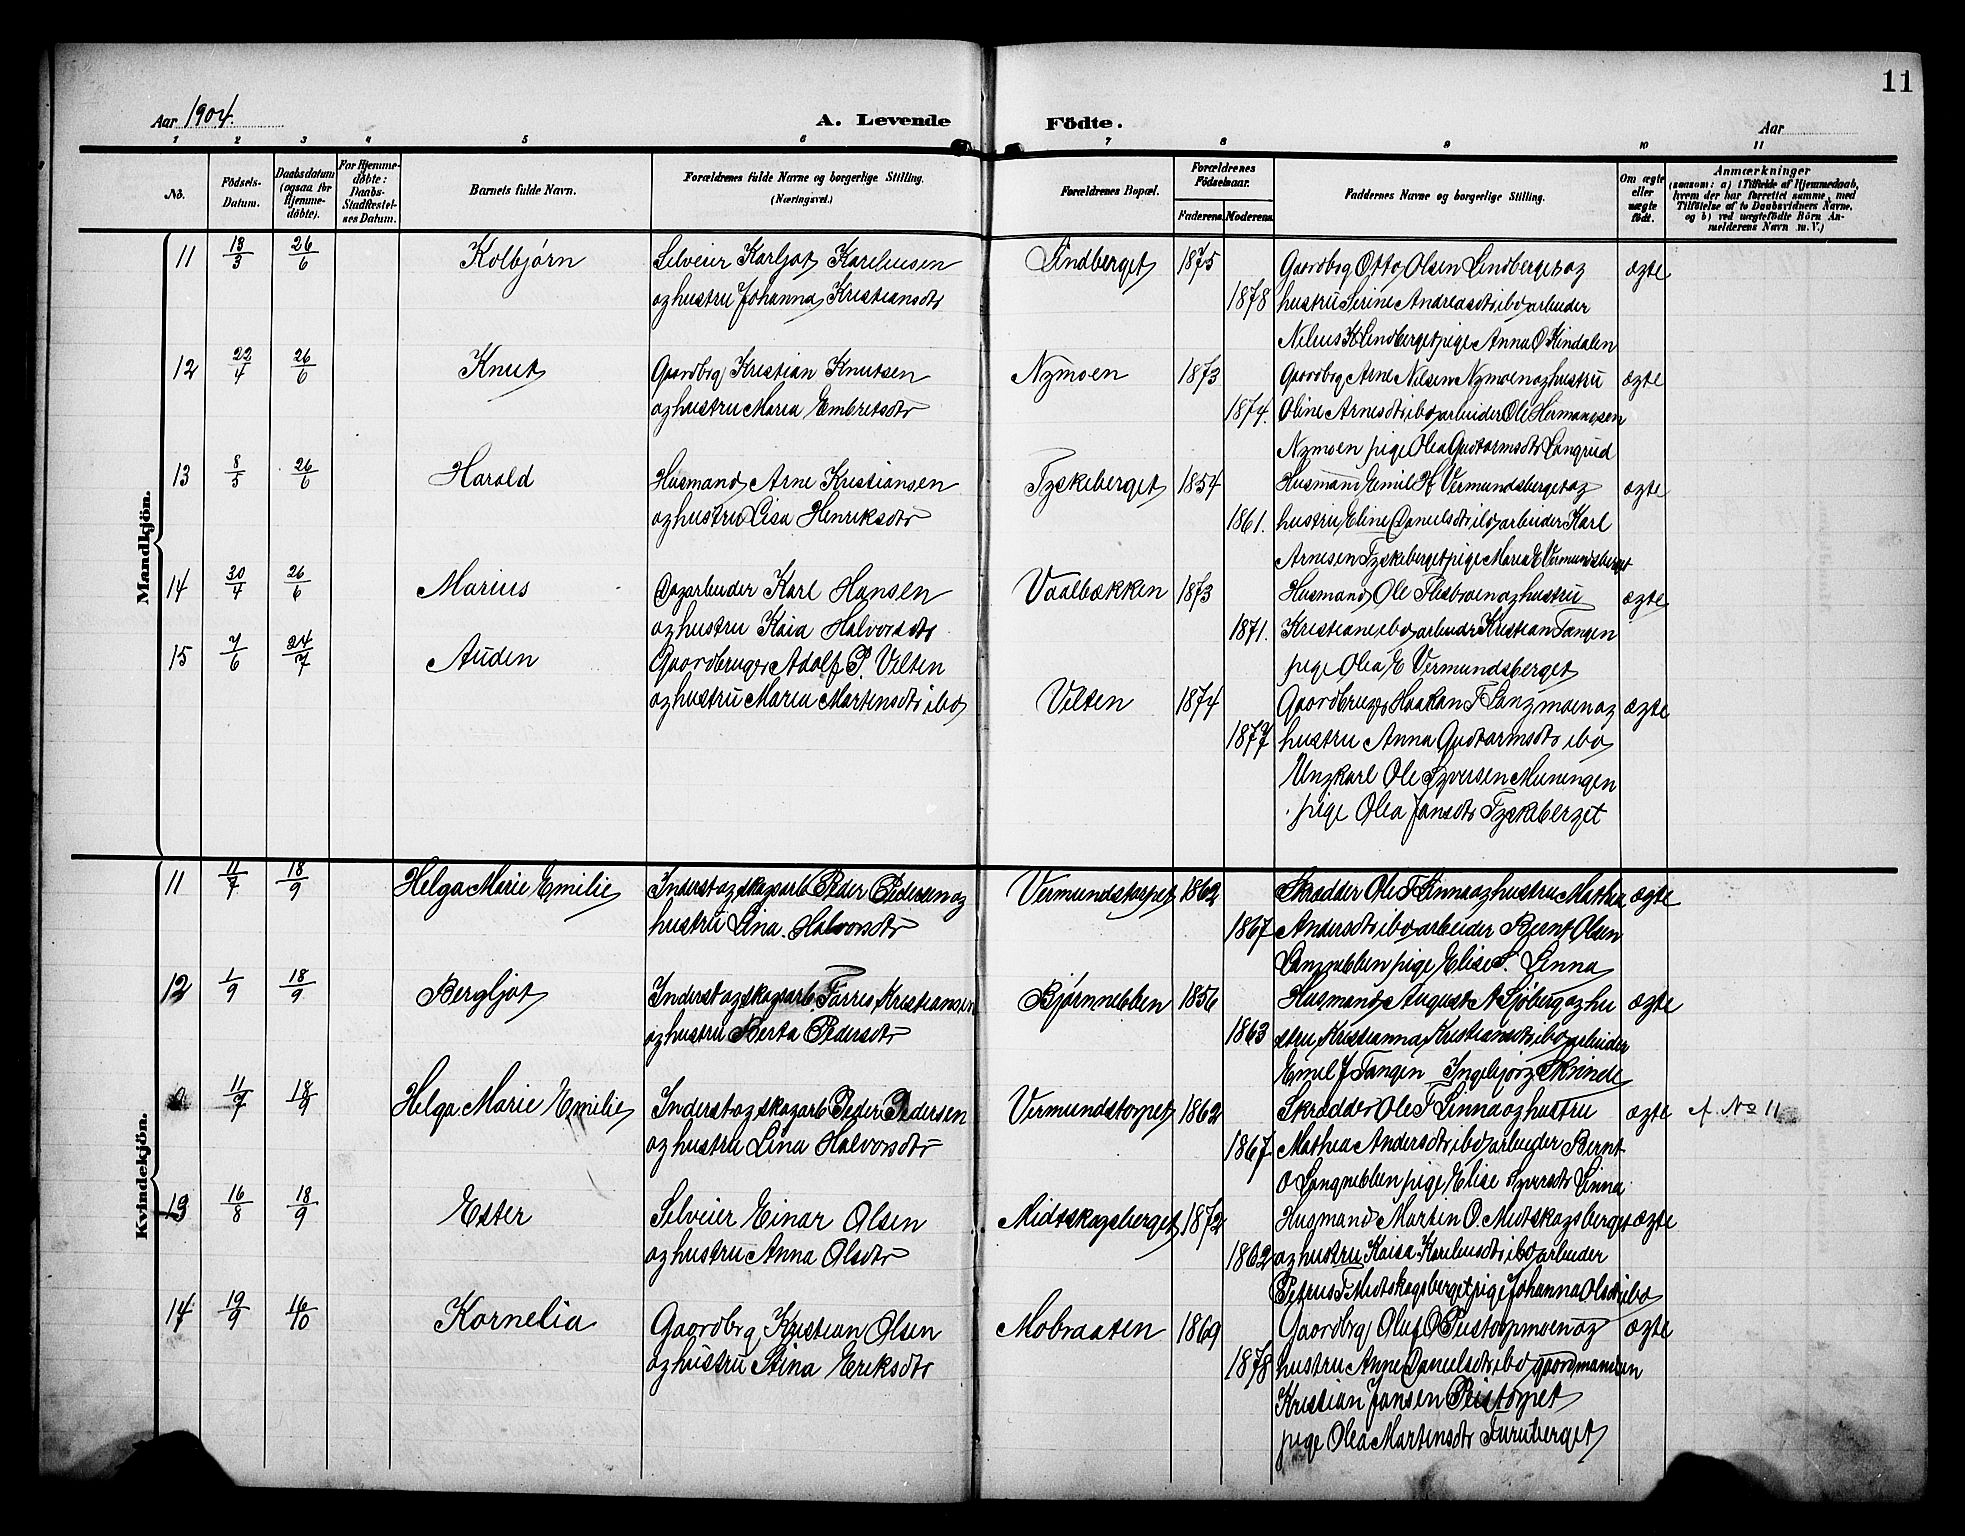 11
Aar 1904.
A. Levende Födte.
Aar
1 2 3 4 5 6 7 8 9 10 11
No.
Födsels-Datum.
Daabsdatum (ogsaa for Hjemme-döbte).
For Hjemme-döbte: Daabs-Stadfæstel-ses Datum.
Barnets fulde Navn.
Forældrenes fulde Navne og borgerlige Stilling. (Næringsvei.)
Forældrenes Bopæl.
Forældrenes Födselsaar.
Faderens. Moderens.
Faddernes Navne og borgerlige Stilling.
Om ægte eller uægte födt.
Anmærkninger
(saasom: a) i Tilfælde af Hjemmedaab, hvem der har forrettet samme, med Tilföielse af to Daabsvidners Navne, og b) ved uægtefödte Börn An-melderens Navn m. V.)
Mandkjön.
11 13/3 26/6 Kolbjørn Selveier Karljot Karelinsen Lindberget 1875 Gaardbrg Otto Olsen Lindberget og ægte
og hustru Johanna Kristiansdtr 1878 hustru Serine Andreasdtr ibd arbeider
Nilius K Lindberget pige Anna O Kindalen
12 22/4 26/6 Knut Gaardbrg Kristian Knutsen Nymoen 1873 Gaardbrg Arne Nilsen Nymoen og hustru ægte
og hustru Maria Embretsdtr 1874. Oline Arnesdtr ibd arbeider Ole Hermansen
Nymoen pige Olea Gudtormsdtr Langrud
13 8/5 26/6 Harald Husmand Arne Kristiansen Tyskeberget 1854 Husmand Emil H Vermundsberget og ægte
og hustru Lisa Henriksdtr 1861. hustru Eline Danielsdtr ibd arbeider Karl
Arnesen Tyskeberget pige Maria E Vermundsberget
14 30/4 26/6 Marius Dagarbeider Karl Hansen Vaalbækken 1873 Husmand Ole Flisbraen og hustru ægte
og hustru Kaia Halvorsdtr 1871. Kristiane ibd arbeidr Kristian Tangen
pige Olea E Vermundsberget
15 7/6 24/7 Auden Gaardbruger Adolf P. Velten
og hustru Maria Martensdtr ibd Velten 1874 Gaardbruger Haakan T Langmoen og ægte
1877 hustru Anna Gudtormsdtr ibd
Ungkarl Ole Syversen Meningen
pige Olea Jansdtr Tyskeberget
Kvindekjön.
11 11/7 18/9 Helga Marie Emilie Inderst og skogarb Peder Pedersen og Vermundstorpet 1862 Skrædder Ole T Linna og hustru Mathea ægte
hustru Lina Halvorsdtr 1867 Andersdtr ibd arbeider Bernt Olsen
Langnebben pige Elise S. Linna
12 1/9 18/9 Bergljot Inderst og skogsarb. Tarris Kristiansen Bjørnnebben 1856 Husmand August N Sjöberg og hu ægte
og hustru Berta Pedersdtr 1863 stru Kristianna Kristiansdtr ibd arbeider
Emil J Tangen Ingebjørg Skrinde
11/7 18/9 Helga Marie Emilie Inderst og skogarb Peder Pedersen Vermundstorpet 1862 Skrædder Ole T Linna og hustru ægte cf. No 11
og hustru Lina Halvorsdtr 1867. Mathea Andersdtr ibd arbeider Bernt
O Langnebben pige Elise Syversdtr Linna
13 16/8 18/9 Ester Selveier Einar Olsen Midtskogsberget 1872 Husmand Martin O. Midtskogsberget ægte
og hustru Anna Olsdtr 1862 og hustru Kaisa Karlinsdtr ibd arbeider
Petrus T Midtskogsberget pige Johanna Olsdtr ibd
14 19/9 16/10 Kornelia Gaardbrg Kristian Olsen Mobraaten 1869 Gaardbrg Oluf O Pustorpmoen og ægte
og hustru Stina Eriksdtr 1878 hustru Anne Danielsdtr ibd gaardmanden
Kristian Jansen Peistorpet
pige Olea Martensdtr Furuberget